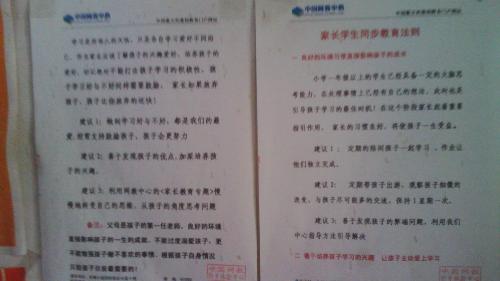 中国网教中心
学习是所有人的天性,只是各自学习爱好不同而
已,作为家长应该了解孩子的兴趣爱好,培养孩子的
爱好,切记绝对不能打击孩子学习的积极性,孩
子学习好与不好同样需要鼓励,家长如果放弃
孩子,孩子比你放弃的还快!
建议1:做到学习好与不好,都是我们的最
爱,经常支持鼓励孩子,孩子会更努力
建议2:善于发现孩子的优点,加深培养孩子
的兴趣。
建议3:利用网教中心的<家长教育专题>慢
慢地转变自己的思维,从孩子的角度思考问题
备注:父母是孩子的第一任老师,良好的环境
直接影响孩子的一生的成就,不能过度溺爱孩子,更
不能勉强孩子做不喜欢的事情,根据孩子自身情况
只能孩子在自身最重要的!
家长学生同步教育法则
一 良好的环境习惯直接影响孩子的成长
小学一年级以上的学生已经具备一定的大脑思
考能力,在处理事情上已经有自己的想法,此时也是
引导孩子学习的最佳时机!在这个阶段家长起着重要
指引作用,家长的习惯良好,将使孩子一生受益。
建议1:定期的陪同孩子一起学习,作业让
他们独立完成。
建议2:定期带孩子出游,观察孩子细微的
改变,与孩子尽可能多的交流,保持1星期一次。
建议3:善于发现孩子的弊端问题,利用我们
中心指导方法引导解决
二 善于培养孩子学习的兴趣 让孩子主动爱上学习